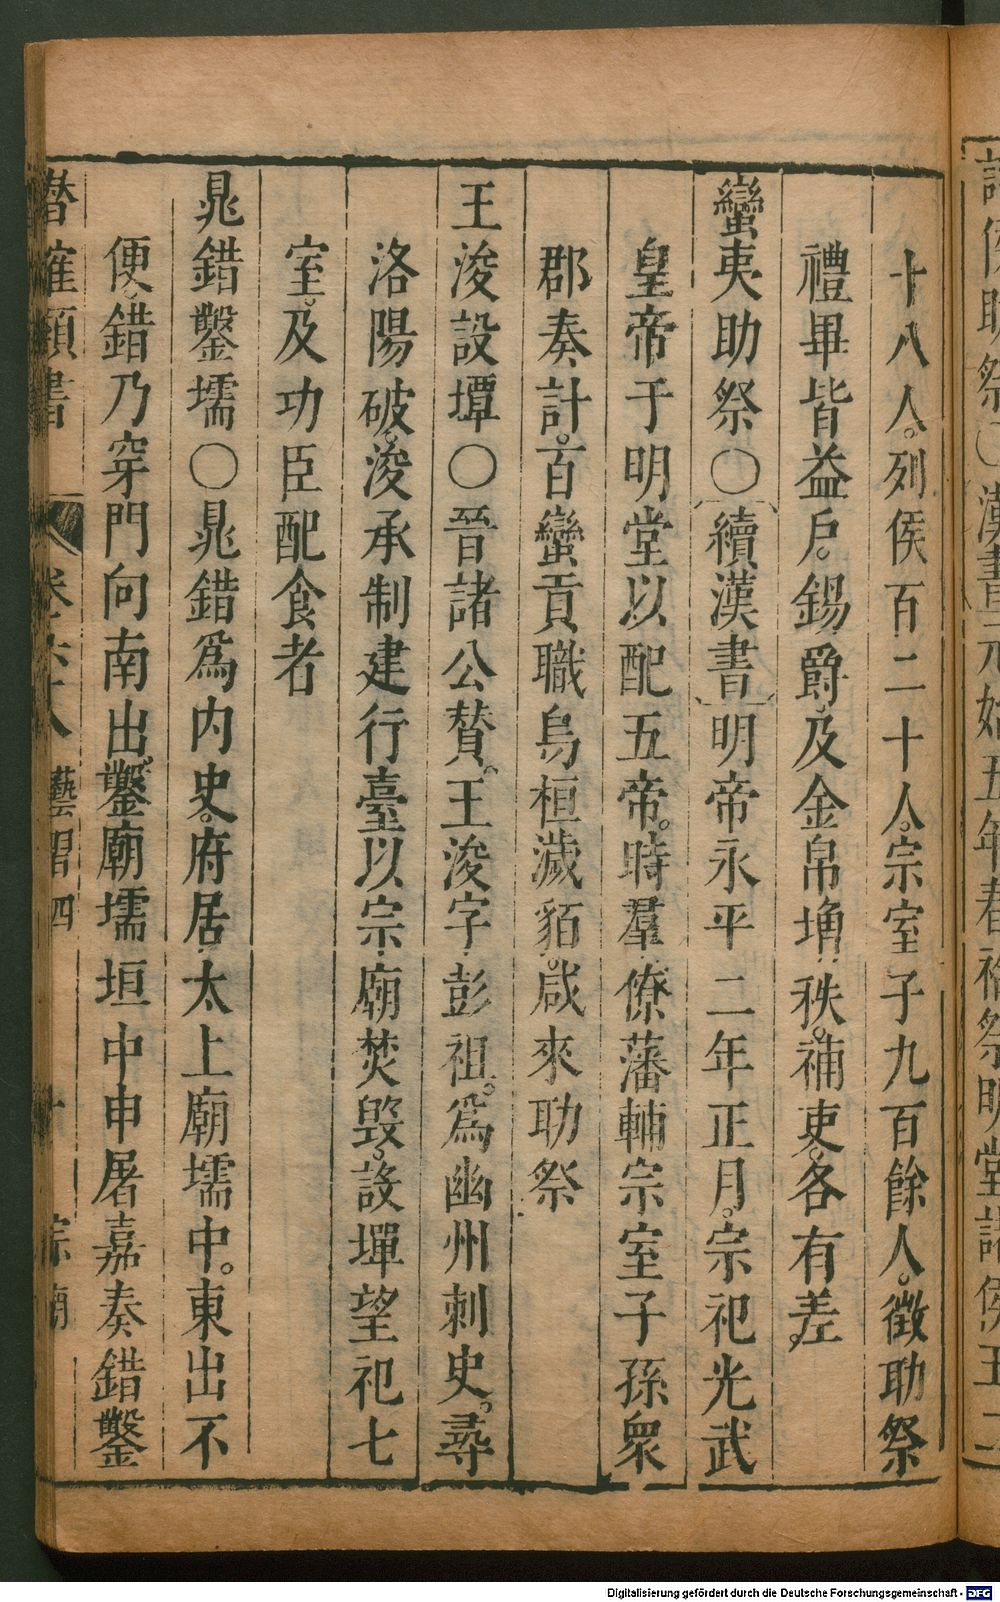 十八人。列侯百二十人。宗室子九百餘人。徵助祭
禮畢皆益戶。錫爵及金帛增秩。補吏各有差
蠻夷助祭○續漢書明帝永平二年正月。宗祀光武
皇帝于明堂以配五帝。時羣僚藩輔宗室子孫眾
郡奏計。百蠻貢職烏桓濊貊。咸來助祭
王浚設墠○晉諸公贊。王浚字彭祖。為幽州刺史。尋
洛陽破。浚承制建行臺以宗廟焚毀。設墠望祀七
室。及功臣配食者
晁錯鑿壖○晁錯爲內史。府居太上廟壖中。東出不
便。錯乃穿門向南出。鑿廟壖垣中申屠嘉奏錯鑿
潛確類書 卷六十八 藝習四 十 宗廟
Digitalisierung gefördert durch die Deutsche Forschungsgemeinschaft - DFG